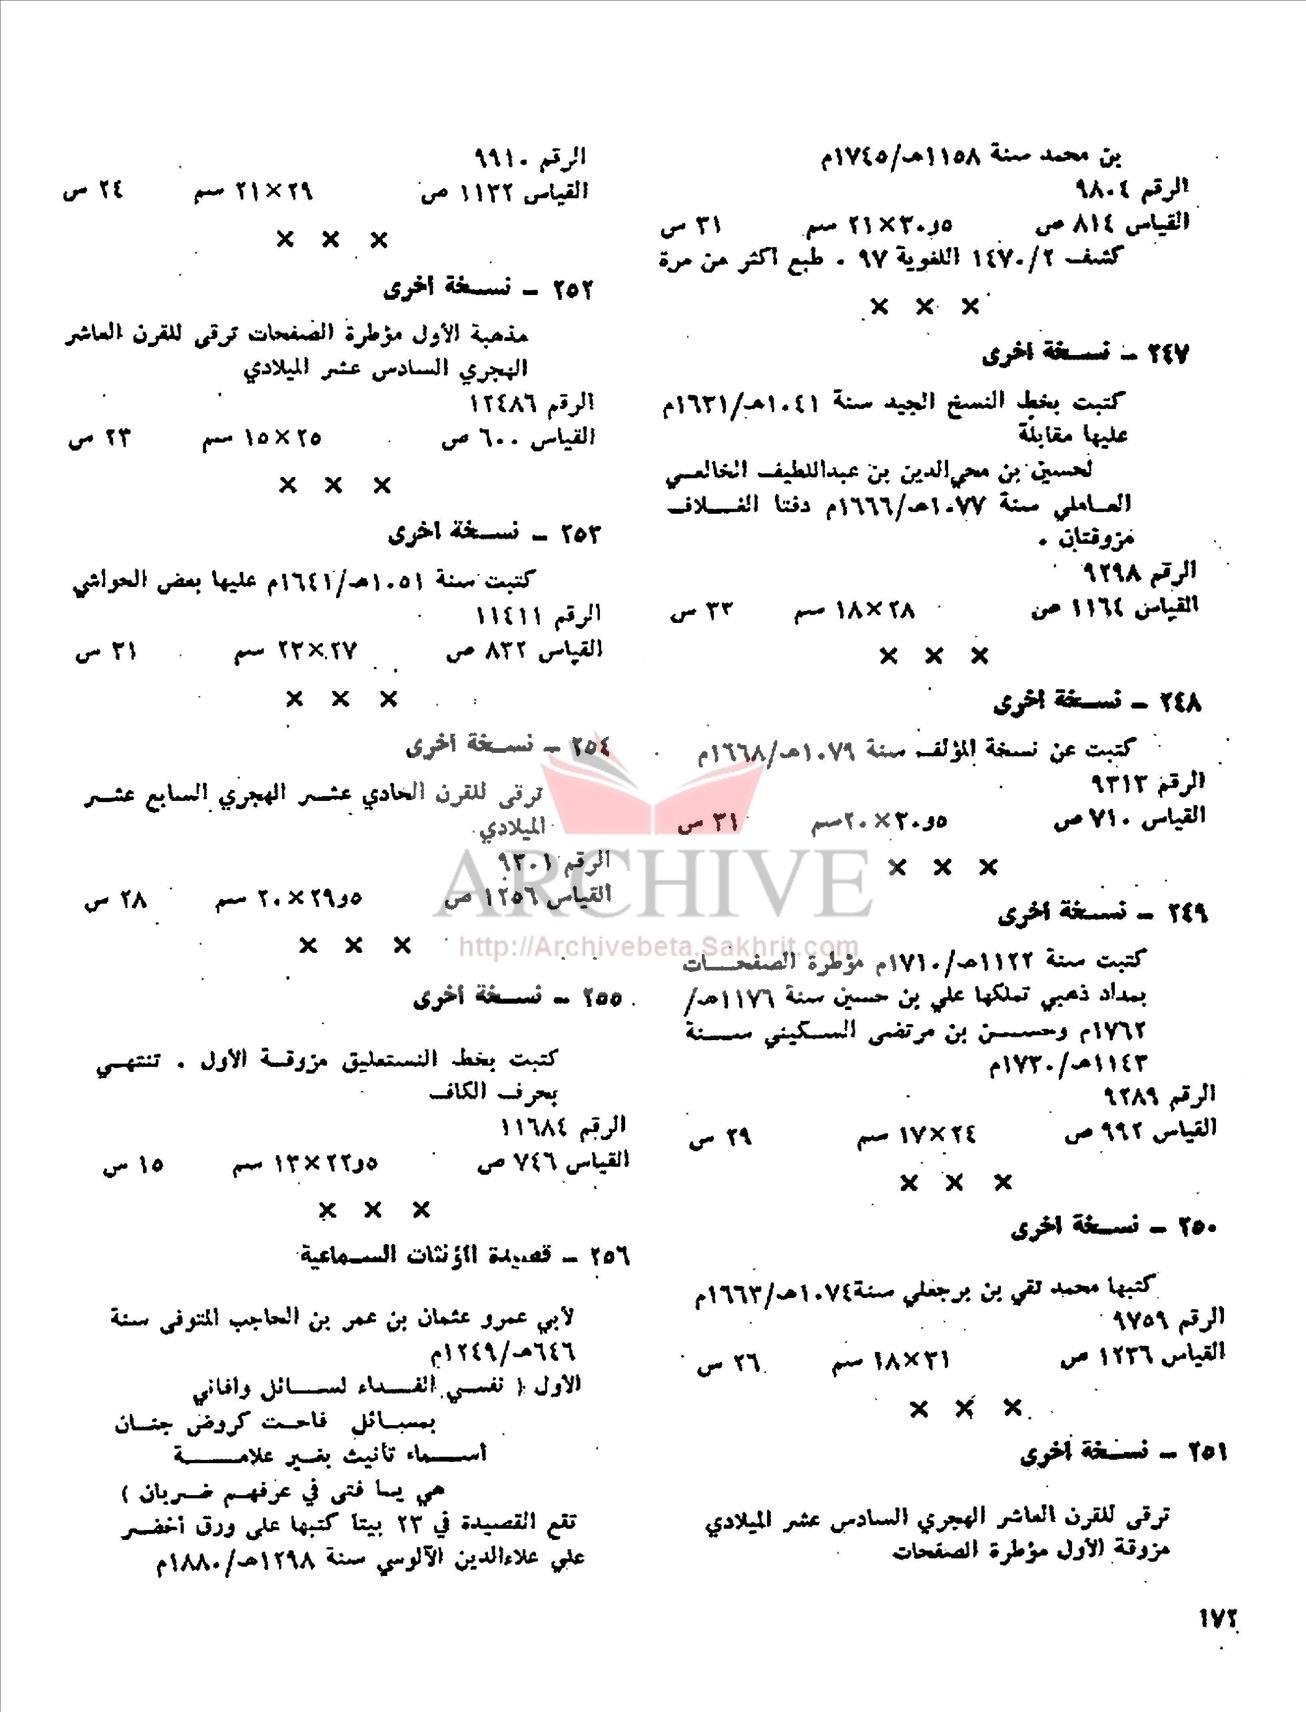 بن محمد سنة ١١٥٨هـ/١٧٤٥م
الرقم ٩٨٠٤
القياس ٨١٤ ص ٣٠٫٥×٢١ سم ٣١ س
كشف ١٤٧٠/٢ اللغوية ٩٧ . طبع اكثر من مرة
× × ×
٢٤٧ - نسخة اخرى
كتبت بخط النسخ الجيد سنة ١٠٤١هـ/١٦٣١م
عليها مقابلة
لحسين بن محي‌الدين بن عبداللطيف الخالعي
العاملي سنة ١٠٧٧هـ/١٦٦٦م دفتا الغلاف
مزوقتان .
الرقم ٩٢٩٨
القياس ١١٦٤ ص ٢٨×١٨ سم ٣٣ س
× × ×
٢٤٨ - نسخة اخرى
كتبت عن نسخة المؤلف سنة ١٠٧٩هـ/١٦٦٨م
الرقم ٩٣١٣
القياس ٧١٠ ص ٣٠٫٥×٢٠سم ٣١ س
× × ×
٢٤٩ - نسخة اخرى
كتبت سنة ١١٢٢هـ/١٧١٠م مؤطرة الصفحات
بمداد ذهبي تملكها علي بن حسين سنة ١١٧٦هـ/
١٧٦٢م وحسن بن مرتضى السكيني سنة
١١٤٣هـ/١٧٣٠م
الرقم ٩٢٨٩
القياس ٩٩٢ ص ٢٤×١٧ سم ٢٩ س
× × ×
٢٥٠ - نسخة اخرى
كتبها محمد تقي بن برجعلي سنة١٠٧٤هـ/١٦٦٣م
الرقم ٩٧٥٩
القياس ١٢٣٦ ص ٣١×١٨ سم ٢٦ س
× × ×
٢٥١ - نسخة اخرى
ترقى للقرن العاشر الهجري السادس عشر الميلادي
مزوقة الاول مؤطرة الصفحات
الرقم ٩٩١٠
القياس ١١٣٢ ص ٢٩×٢١ سم ٢٤ س
× × ×
٢٥٢ - نسخة اخرى
مذهبة الاول مؤطرة الصفحات ترقى للقرن العاشر
الهجري السادس عشر الميلادي
الرقم ١٢٤٨٦
القياس ٦٠٠ ص ٢٥×١٥ سم ٢٣ س
× × ×
٢٥٣ - نسخة اخرى
كتبت سنة ١٠٥١هـ/١٦٤١م عليها بعض الحواشي
الرقم ١١٤١١
القياس ٨٣٢ ص ٢٧×٢٢ سم ٣١ س
× × ×
٢٥٤ - نسخة اخرى
ترقى للقرن الحادي عشر الهجري السابع عشر
الميلادي
الرقم ٩٣٠١
القياس ١٢٥٦ ص ٢٩٫٥×٢٠ سم ٢٨ س
× × ×
٢٥٥ - نسخة اخرى
كتبت بخط النستعليق مزوقة الاول . تنتهي
بحرف الكاف
الرقم ١١٦٨٤
القياس ٧٤٦ ص ٢٢٫٥×١٣ سم ١٥ س
× × ×
٢٥٦ - قصيدة المؤنثات السماعية
لأبي عمرو عثمان بن عمر بن الحاجب المتوفى سنة
٦٤٦هـ/١٢٤٩م
الاول ( نفسي الفداء لسائل وافاني
بمسائل فاحت كروض جنان
أسماء تأنيث بغير علامة
هي يا فتى في عرفهم ضربان )
تقع القصيدة في ٢٣ بيتا كتبها على ورق أخضر
علي علاءالدين الآلوسي سنة ١٢٩٨هـ/١٨٨٠م
١٧٢
ARCHIVE
http://Archivebeta.Sakhrit.com